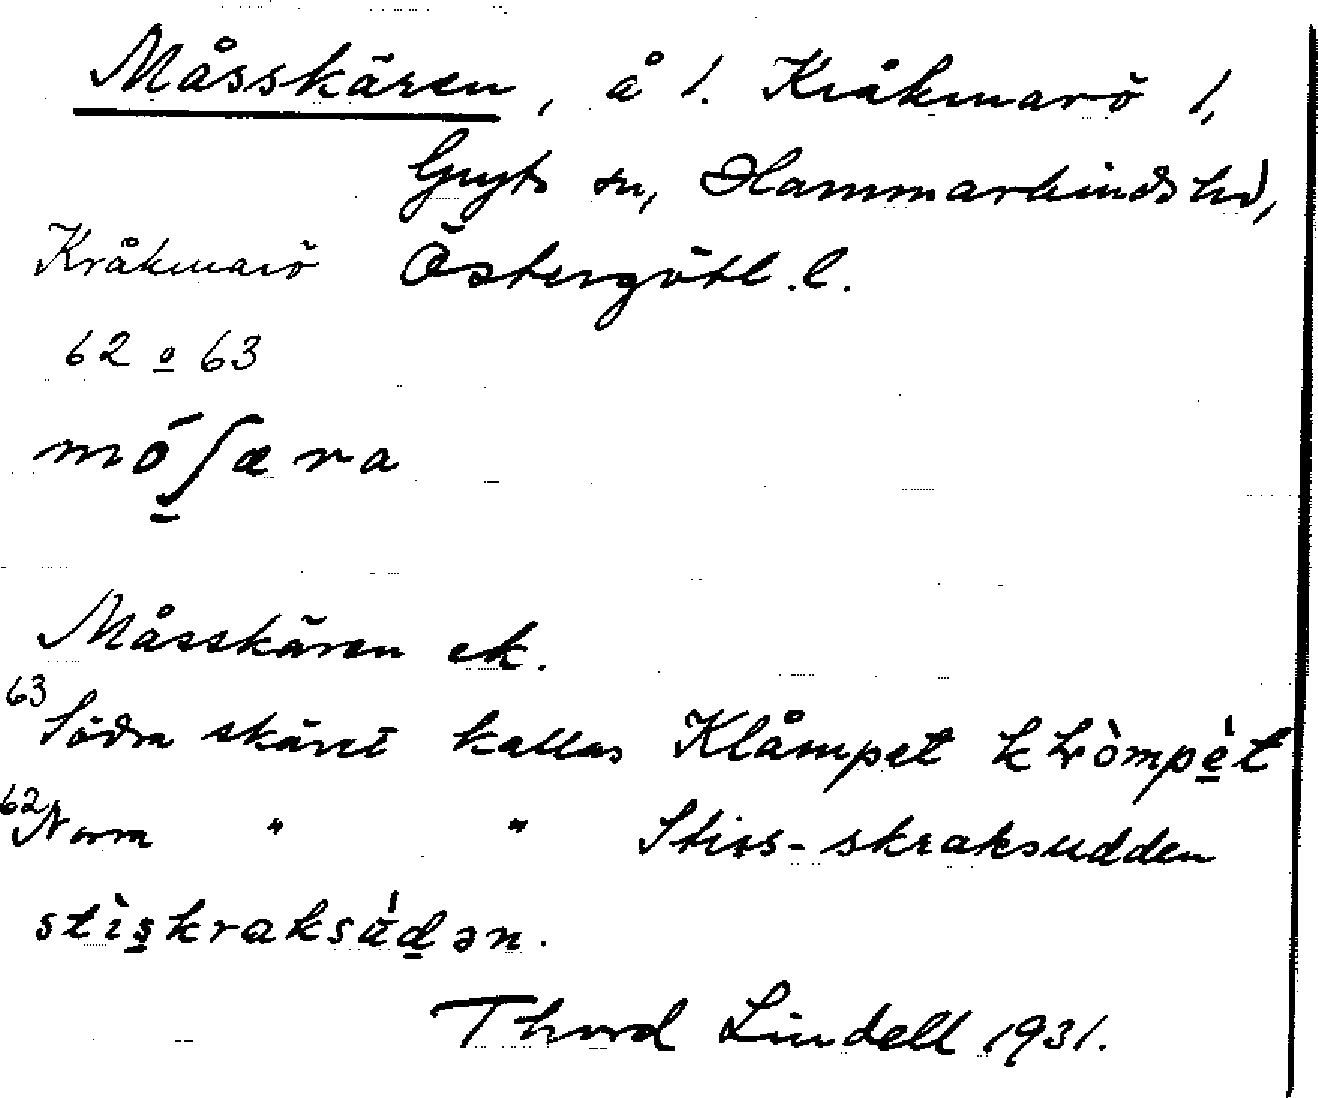 Måsskären, å 1. Kråkmarö 1,
Gryts sn, Hammarkinds hd,
Kråkmarö Östergötl. l.
62 o 63
mó̱ʃæra
Måsskären ek.
63 Södra skäret kallas Klåmpet
62 Norra " " Stiss-skraksudden
Thord Lindell 1931.